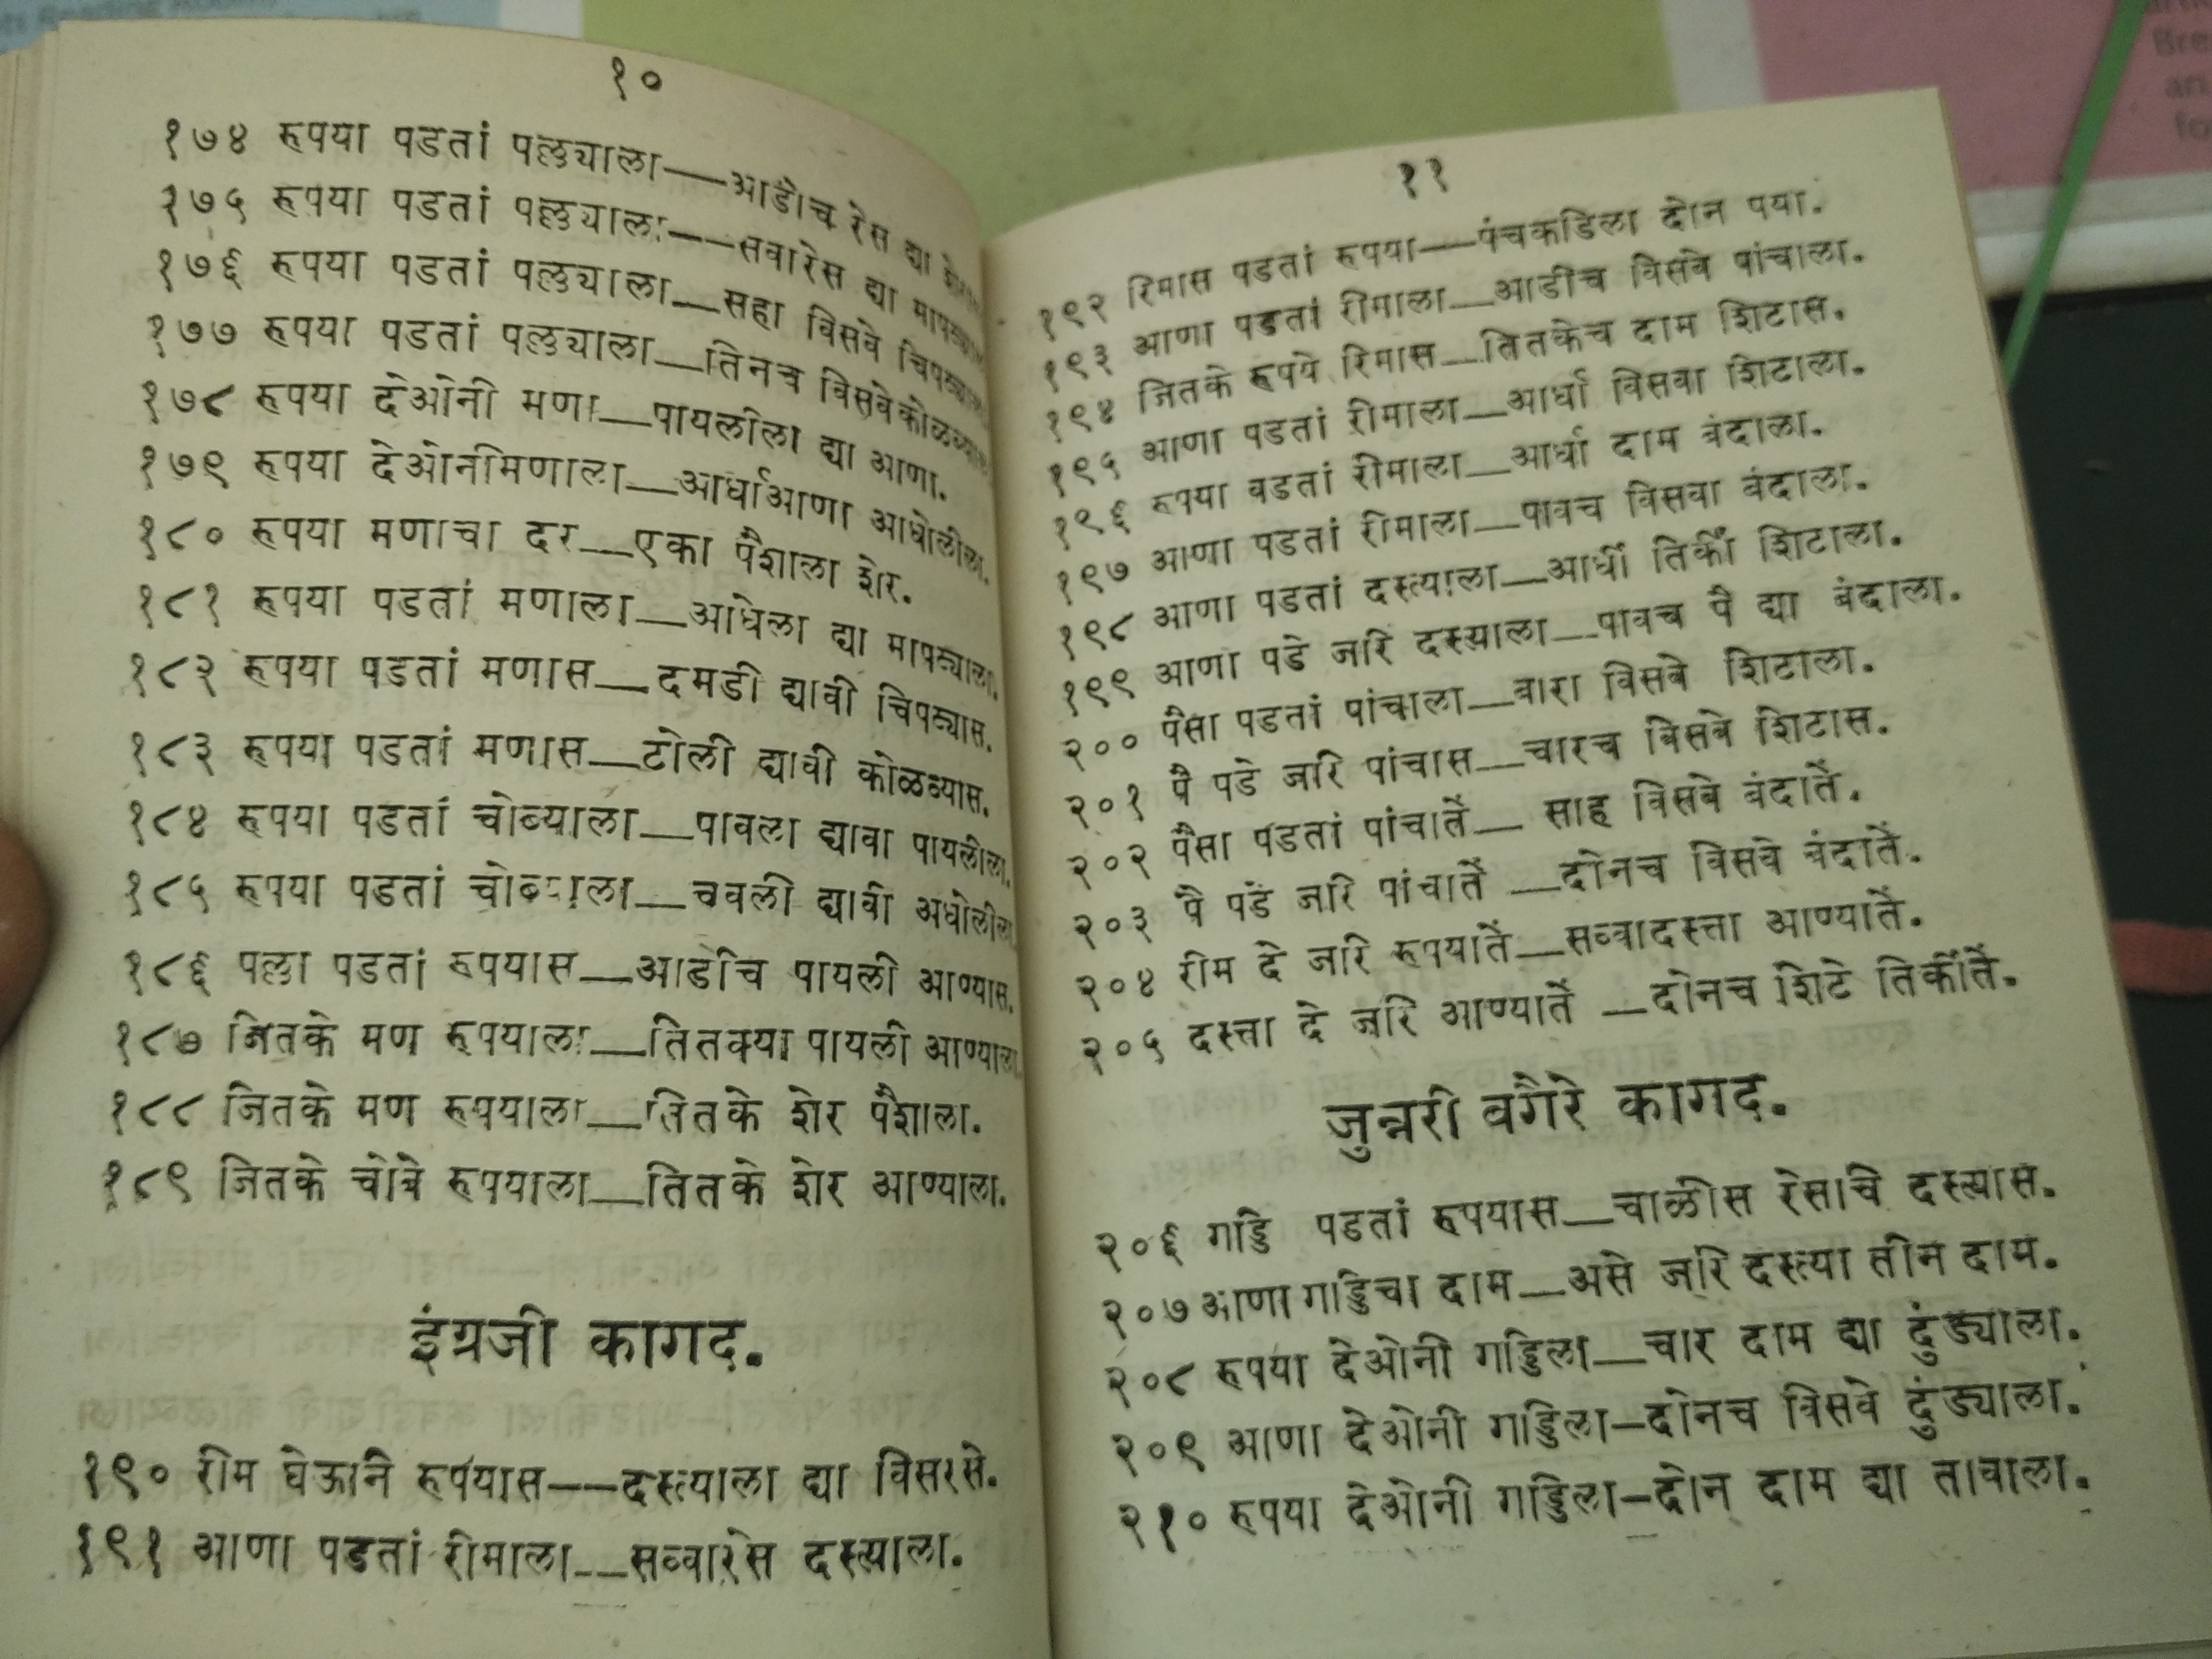 १०
१७४ रूपया पडतां पल्लुयाला——आडीच रेस द्या
१७५ रूपया पडतां पल्लुयाला——सवारेस द्या
१७६ रूपया पडतां पल्लुयाला—सहा विसवे
१७७ रूपया पडतां पल्लुयाला—तिनच विसवे
१७८ रूपया देओनी मणा—पायलीला द्या आणा.
१७९ रूपया देओनीमणाला—आर्धाआणा आधोलीला.
१८० रूपया मणाचा दर—एका पैशाला शेर.
१८१ रूपया पडतां मणाला—आधेला द्या मापट्याला.
१८२ रूपया पडतां मणास—दमडी द्यावी चिपट्यास.
१८३ रूपया पडतां मणास—टोली द्यावी कोळव्यास.
१८४ रूपया पडतां चोव्याला—पावला द्यावा पायलीला.
१८५ रूपया पडतां चोव्याला—चवली द्यावी अधोलीला
१८६ पल्ला पडतां रूपयास—आडीच पायली आण्यास.
१८७ जितके मण रूपयाला—तितक्या पायली आण्याला
१८८ जितके मण रूपयाला—तितके शेर पैशाला.
१८९ जितके चोवे रूपयाला—तितके शेर आण्याला.
इंग्रजी कागद.
१९० रीम घेऊनि रूपयास——दस्त्याला द्या विसरसे.
१९१ आणा पडतां रीमाला—सव्वारेस दस्त्याला.
११
१९२ रिमास पडतां रूपया—पंचकडिला दोन पया.
१९३ आणा पडतां रीमाला—आडीच विसवे पांचाला.
१९४ जितके रूपये रिमास—तितकेच दाम शिटास.
१९५ आणा पडतां रीमाला—आर्धा विसवा शिटाला.
१९६ रूपया वडतां रीमाला—आर्धा दाम बंदाला.
१९७ आणा पडतां रीमाला—पावच विसवा बंदाला.
१९८ आणा पडतां दस्त्याला—आर्धी तिर्की शिटाला.
१९९ आणा पडे जरि दस्त्याला—पावच पै द्या बंदाला.
२०० पैसा पडतां पांचाला—बारा विसवे शिटाला.
२०१ पै पडे जरि पांचास—चारच विसवे शिटास.
२०२ पैसा पडतां पांचातें— साह विसवे बंदातें.
२०३ पै पडे जरि पांचातें —दोनच विसवे बंदातें.
२०४ रीम दे जरि रूपयातें—सव्वादस्त्ता आण्यातें.
२०५ दस्त्ता दे जरि आण्यातें —दोनच शिटे तिर्कीतें.
जुन्नरी वगैरे कागद.
२०६ गड्डि पडतां रूपयास—चाळीस रेसाचे दस्त्यास.
२०७ आणा गड्डिचा दाम—असे जरि दस्त्या तीन दाम.
२०८ रूपया देओनी गड्डिला—चार दाम द्या दुंड्याला.
२०९ आणा देओनी गड्डिला—दोनच विसवे दुंड्याला.
२१० रूपया देओनी गड्डिला—दोन दाम द्या तावाला.